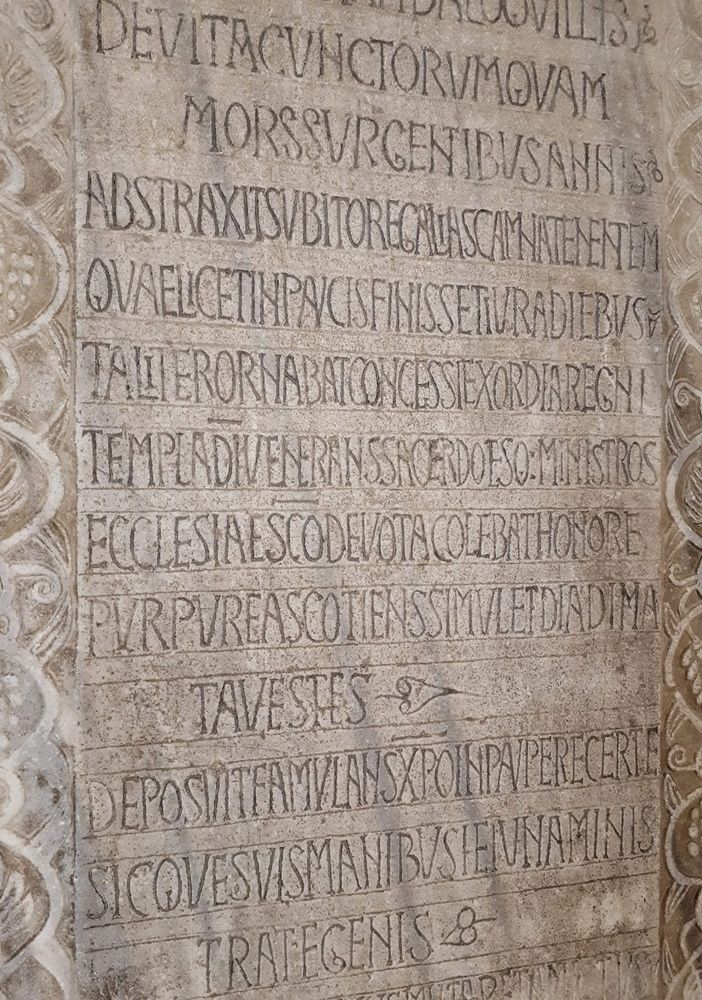 DEVITACVNCTORVMQVAM
MORSSVRGENTIBVSANNIS
ABSTRAXITSVBITOREGALIASCAMNATENENTEM
QVAELICETINPACISFINISSETIVRADIEBVS
TALITERORNABATCONCESSIEXORDIAREGNI
TEMPLADIVENERANSSACERDOESQ:MINISTROS
ECCLESIAESCODEVOTACOLEBATHONORE
PVRPVREASCOTIENSSIMVLETDIADIMA
TAVESTES
DEPOSVITFAMVLANSXPOINPAVPERECERTE
SICQVESVISMANIBVSIEIVNAMINIS
TRATEGENIS